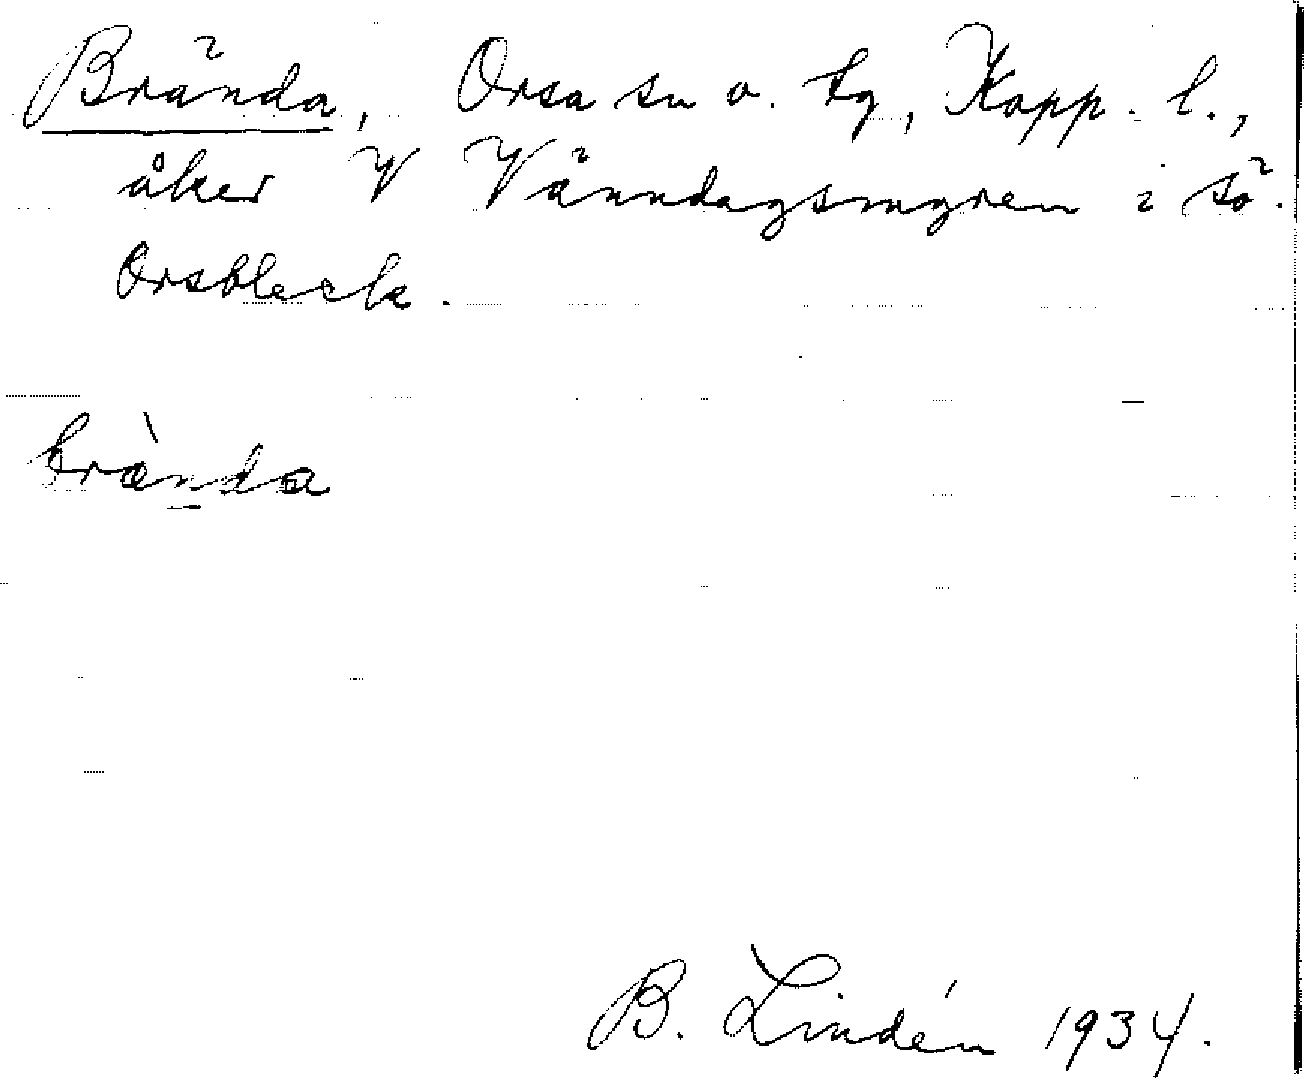 Brända, Orsa sn o. tg, Kopp. l.,
åker V Vänndagsmyren i sö.
Orsbleck.
brànda
B. Lindén 1934.